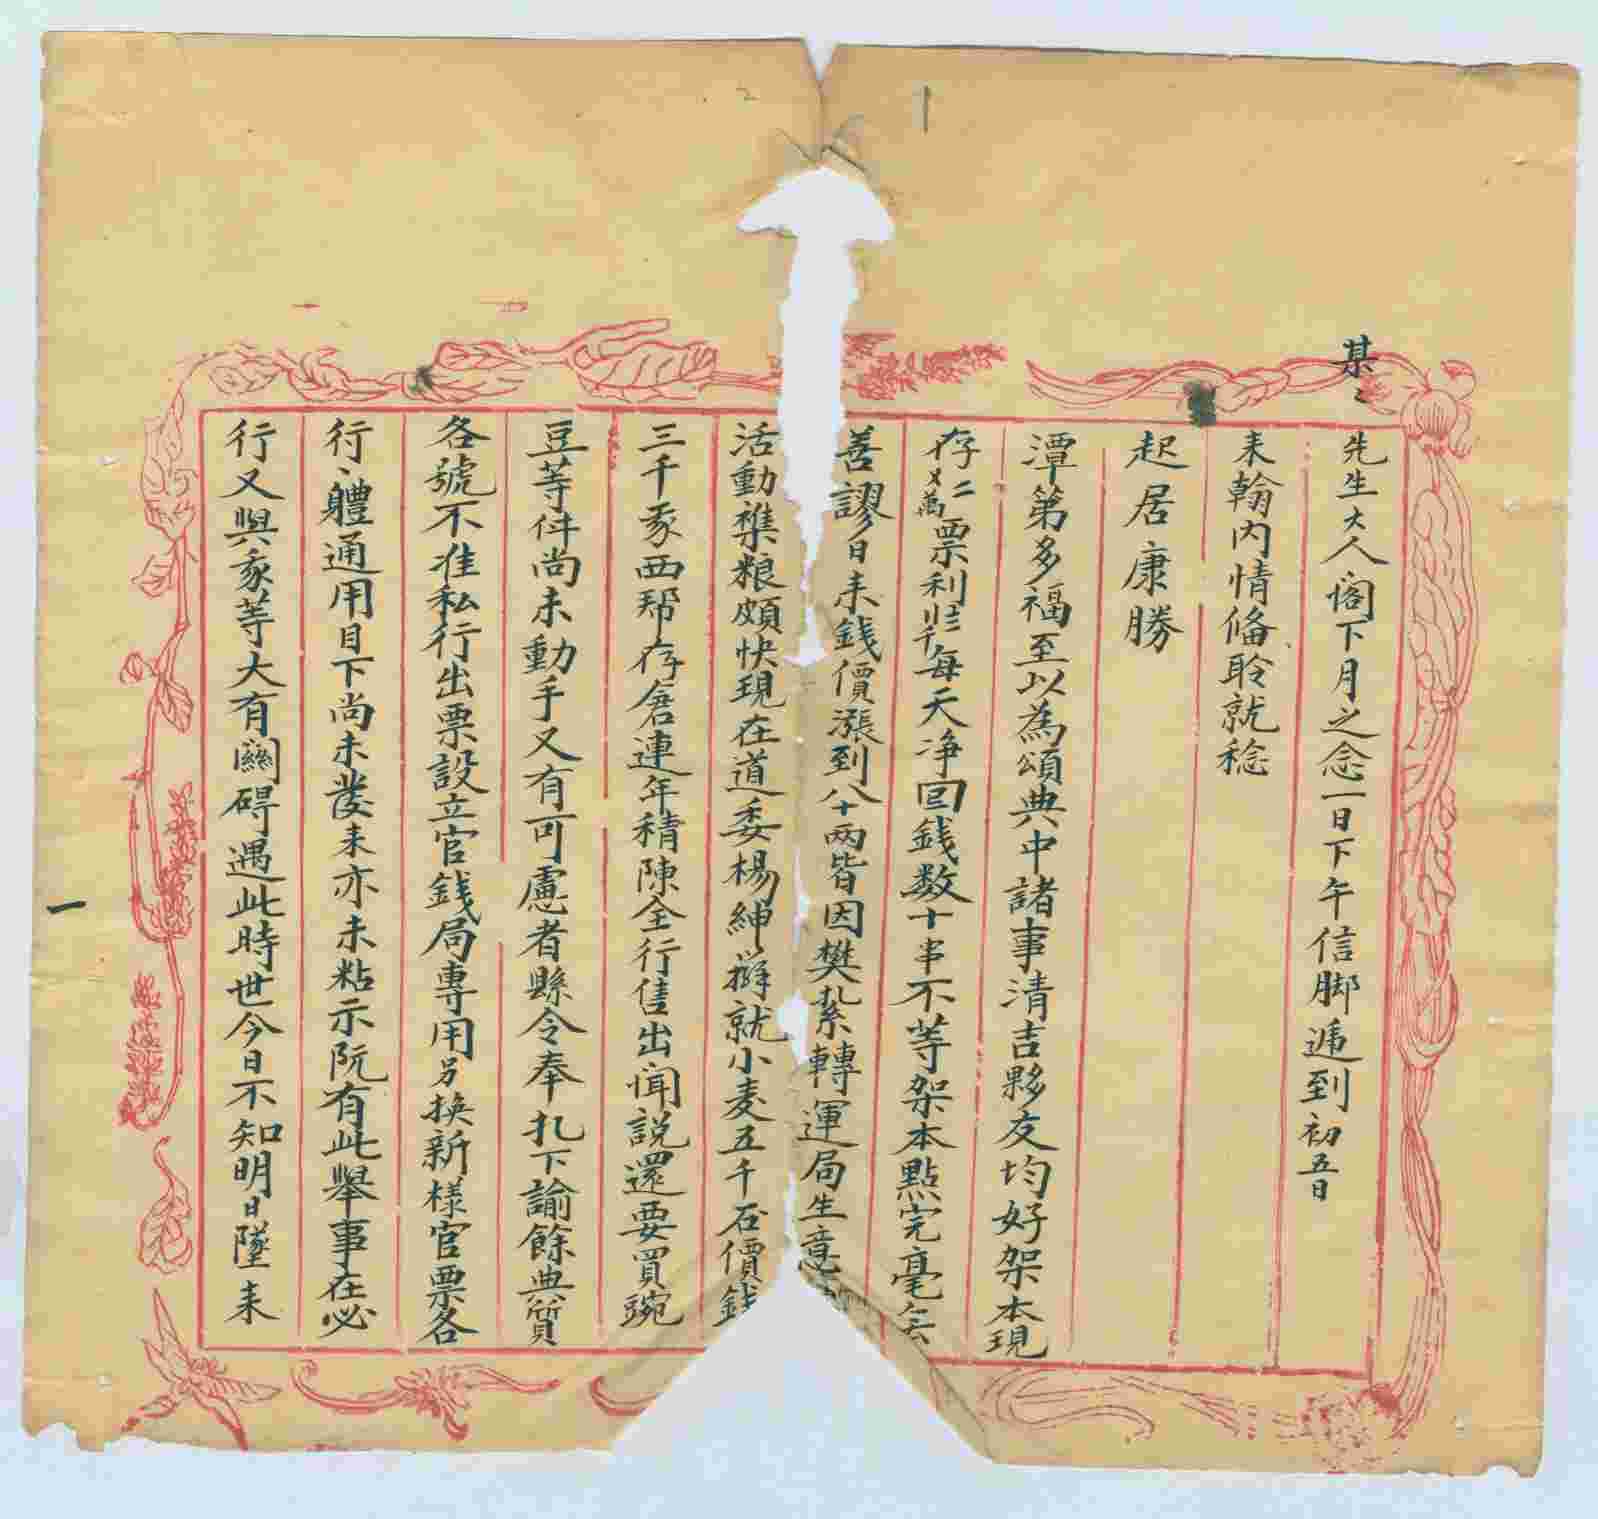 某
先生大人閣下月之念一日下午信脚遞到初五日
来翰内情俻聆就稔
起居康勝
潭第多福至以為頌典中諸事清吉夥友均好架本現
存二萬票利每天净囬銭数十串不等架本點完毫無
善謬日来銭價漲到八十兩皆因樊紥轉運局生意
活動襍粮頗快現在道委楊紳辦就小麦五千石價銭
三千豖西帮存倉連年積陳全行售出闻説還要買豌
豆等件尚未動手又有可慮者縣令奉扎下諭餘典質
各號不准私行出票設立官銭局專用另换新様官票各
行、體通用目下尚未發来亦未粘示阮有此舉事在必
行又與豖等大有關碍遇此時世今日不知明日墜来
一